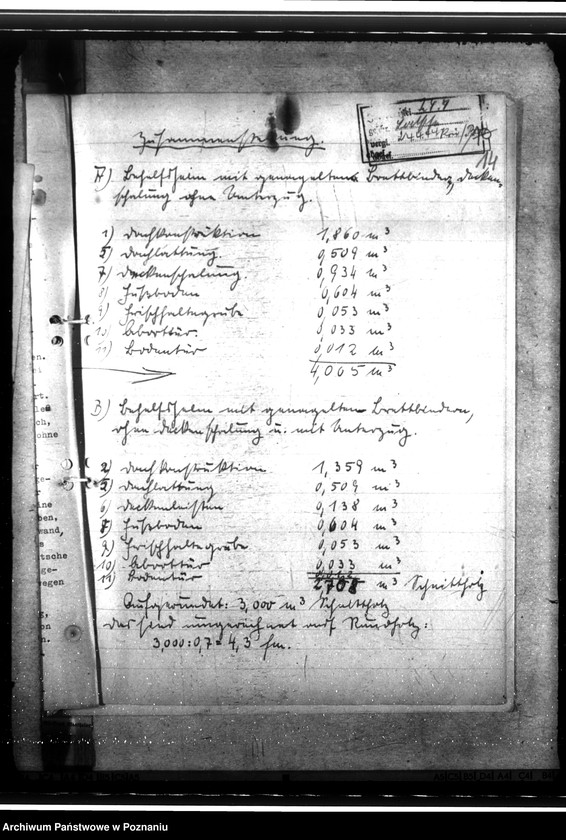 Zusammenstellung.
14
A) Behelfsheim mit genagelten Brettbinder, Decken-
schalung ohne Unterzug.
1) Dachkonstruktion 1,860 m³
5) Dachlattung 0,509 m³
7) Deckenschalung 0,934 m³
8) Fussboden 0,604 m³
9) Frischhaltegrube 0,053 m³
10) Aborttür 0,033 m³
11) Bodentür 0,012 m³
4,005 m³
B) Behelfsheim mit genagelten Brettbindern,
ohne Deckenschalung u. mit Unterzug.
2) Dachkonstruktion 1,359 m³
5) Dachlattung 0,509 m³
6) Deckenleisten 0,138 m³
8) Fussboden 0,604 m³
9) Frischhaltegrube 0,053 m³
10) Aborttür 0,033 m³
11) Bodentür
2708 m³ Schnittholz
Aufgerundet: 3,000 m³ Schnittholz
Das sind umgerechnet auf Rundholz:
3,000:0,7 = 4,3 fm.
en.
rt.
ch,
ohne
ine
ben,
wand,
tsche
ge-
wegen
on
n.
Archiwum Państwowe w Poznaniu